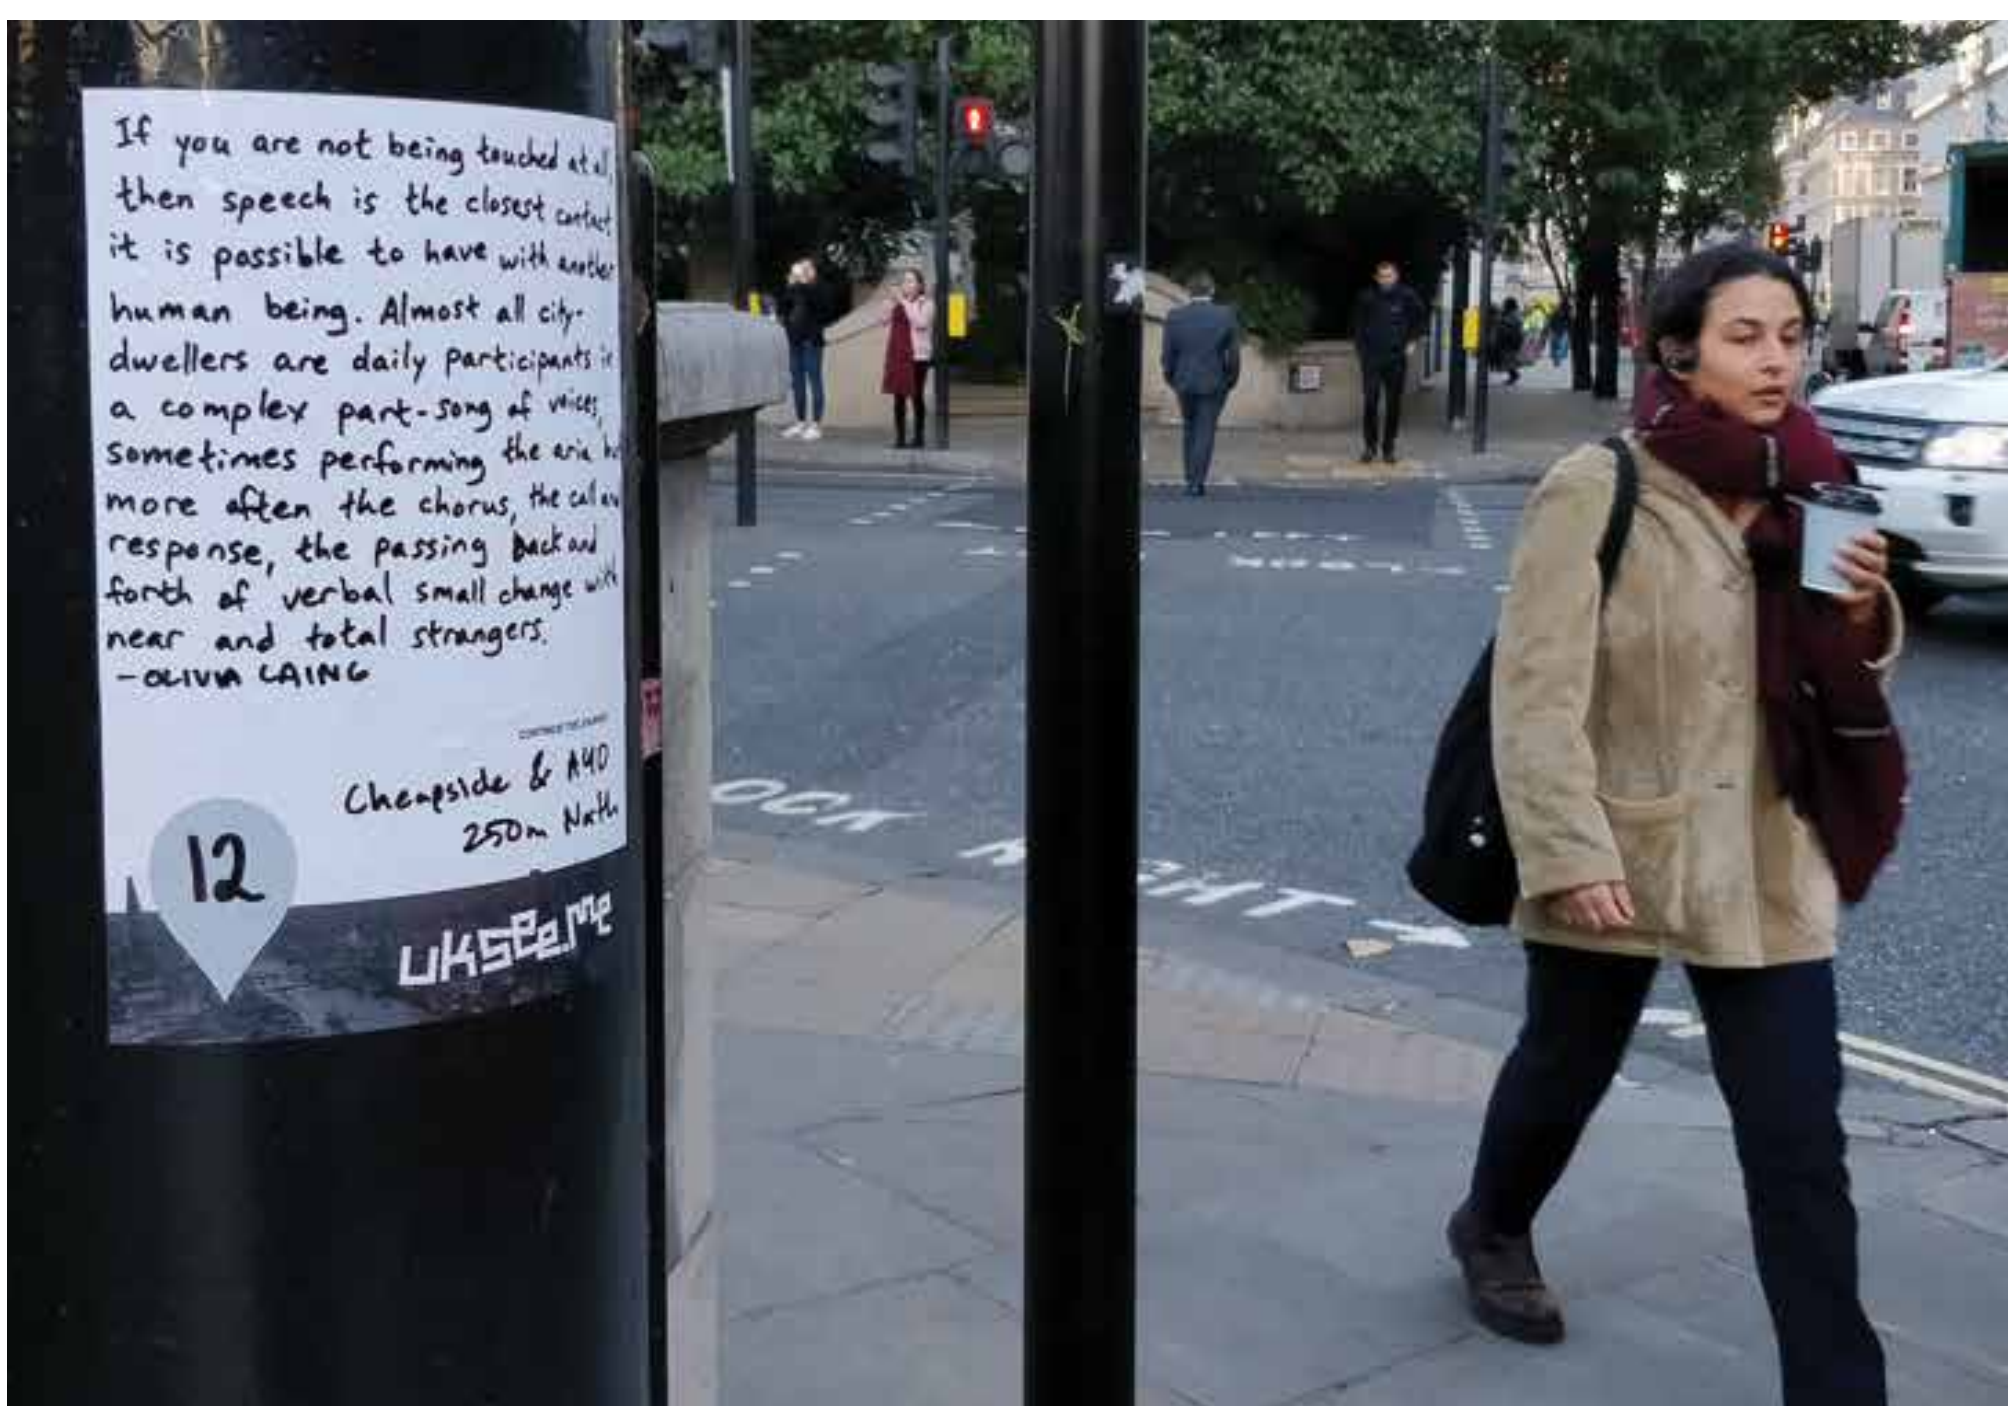 If you are not being touched at al
then speech is the closest contact
it is possible to have with another
human being. Almost all city-
dwellers are daily participants in
a complex part-song of voices,
sometimes performing the aria bu
more often the chorus, the call an
response, the passing back and
forth of verbal small change with
near and total strangers.
- OLIVIA LAING
CONTINUE THE JOURNEY
Cheapside & A40
250m North
12
uksee.me
LOOK
OCK